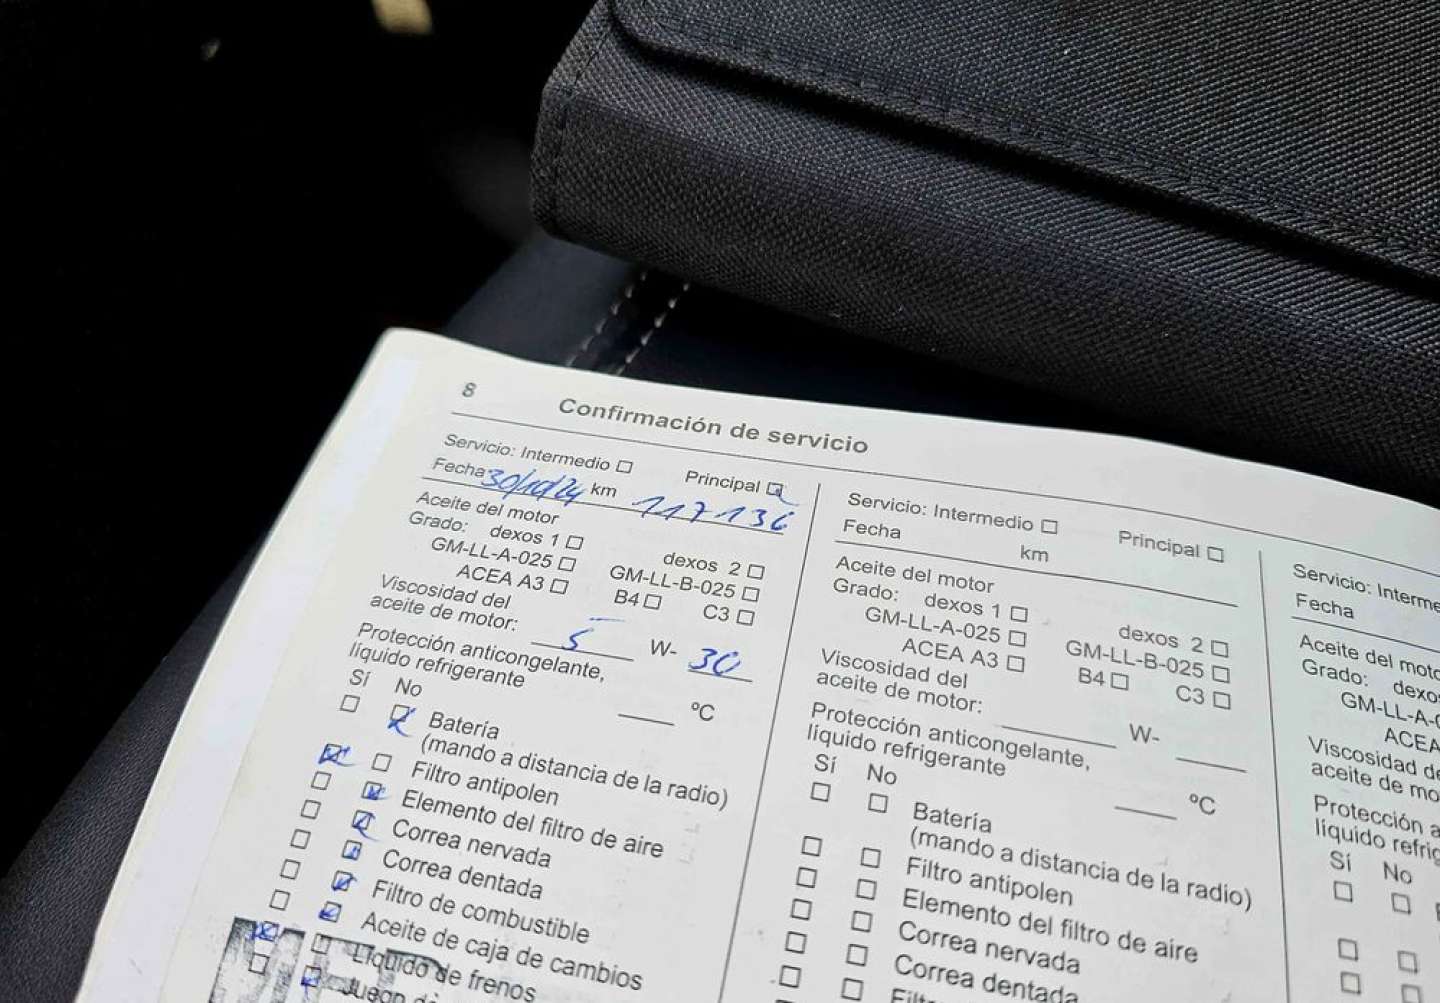 8 Confirmación de servicio
Servicio: Intermedio ☐ Principal ☑
Fecha 30/10/24 km 117136
Aceite del motor
Grado: dexos 1 ☐ dexos 2 ☐
GM-LL-A-025 ☐ GM-LL-B-025 ☐
ACEA A3 ☐ B4 ☐ C3 ☐
Viscosidad del
aceite de motor: 5 W- 30
Protección anticongelante,
líquido refrigerante ____ ºC
Sí No
☐ ☑ Batería
(mando a distancia de la radio)
☑ ☐ Filtro antipolen
☐ ☑ Elemento del filtro de aire
☐ ☑ Correa nervada
☐ ☑ Correa dentada
☐ ☑ Filtro de combustible
☐ ☑ Aceite de caja de cambios
☑ ☐ Líquido de frenos
☐ ☑ Juego de
Servicio: Intermedio ☐ Principal ☐
Fecha km
Aceite del motor
Grado: dexos 1 ☐ dexos 2 ☐
GM-LL-A-025 ☐ GM-LL-B-025 ☐
ACEA A3 ☐ B4 ☐ C3 ☐
Viscosidad del
aceite de motor: ____ W- ____
Protección anticongelante,
líquido refrigerante ____ ºC
Sí No
☐ ☐ Batería
(mando a distancia de la radio)
☐ ☐ Filtro antipolen
☐ ☐ Elemento del filtro de aire
☐ ☐ Correa nervada
☐ ☐ Correa dentada
Servicio: Interme
Fecha
Aceite del moto
Grado: dexo
GM-LL-A-0
ACEA
Viscosidad de
aceite de mo
Protección a
líquido refrig
Sí No